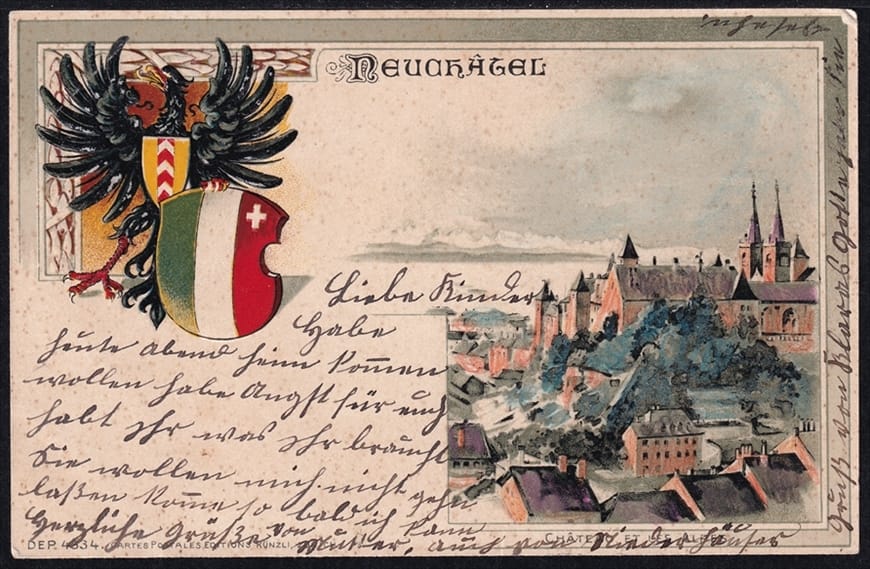 NEUCHÂTEL
Liebe Kinder
Habe
heute abend heim kommen
wollen habe Angst für euch
habt Ihr was Ihr braucht
Sie wollen mich nicht gehn
laßen komme so bald ich kann
Herzliche Grüße von
Mutter, auch von Niederhäuser
DEP. 4634. CARTES POSTALES EDITIONS KÜNZLI,
CHÂTEAU ET LES ALPES
Gruß von Klaras Gotte